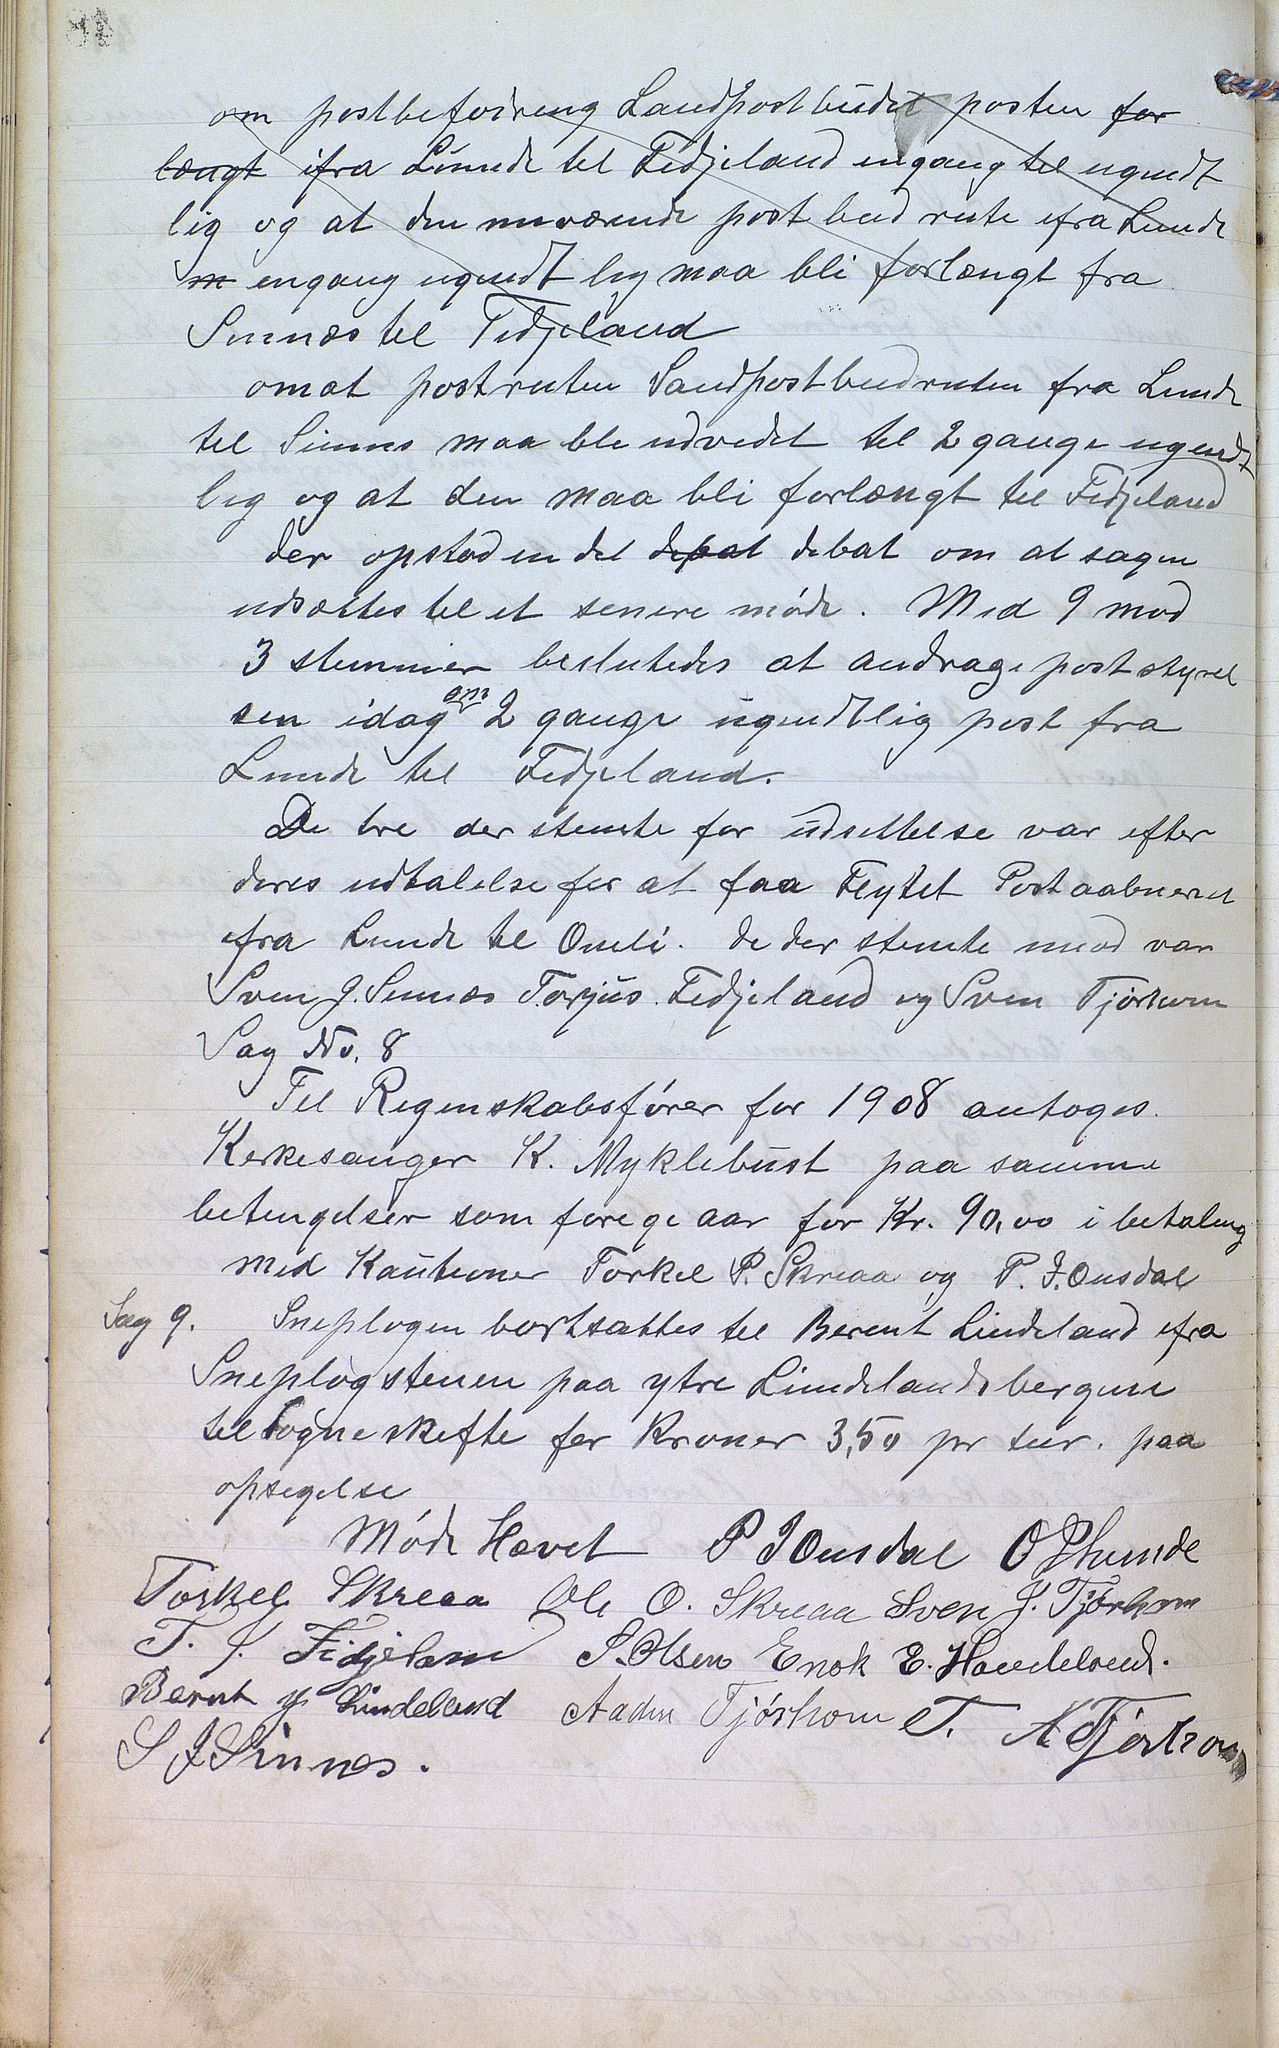 om postbefordreng Landpostbudet posten for
længt ifra Lunde til Fidjeland engang til ugendt
lig og at den nuværende postbudrute ifra Lunde
m engang ugendtlig maa bli forlængt fra
Sinnæs til Fidjeland
omat postruten Landpostbudruten fra Lunde
til Sinnes maa bli udvidet til 2 gange ugendt
lig og at den maa bli forlængt til Fidjeland
der opstod en del debat debat om at sagen
udsættes til et senere møde. Med 9 mod
3 stemmer beslutedes at andrage poststyrel
sen idag om 2 gange ugendtlig post fra
Lunde til Fidjeland.
De tre der stemte for udsettelse var efter
deres udtalelse for at faa Flytet Postaabneriet
fra Lunde til Omli. de der stemte mod var
Sven J. Sinnæs Torjus Fidjeland og Sven Tjørhom
Sag No. 8
Til Regenskabsfører for 1908 antoges
Kerkesanger K. Myklebust paa samme
betengelser som forige aar for Kr. 90,00 i betaling
med Kautioner Torkel P. Skreaa og P. J. Ousdal
Sag 9. Sneplogen bortsattes til Berent Lindeland ifra
Sneplogstenen paa ytre Lindelandsbergene
til Sogneskifte for Kroner 3,50 pr tur. paa
opsegelse
Møde Hævet P J Ousdal O P Lunde
Torkel Skreaa Ole O. Skreaa Sven J. Tjørhom
T. S. Fidjeland S. Olsen Enok E. Haudeland.
Bernt J Lindeland Aaden Tjørhom T. A Tjørhom
S J Sinnes.